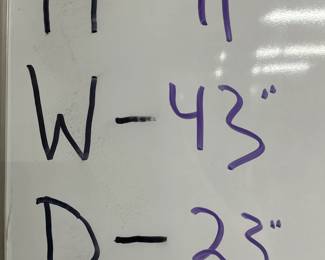 W - 43"
D - 23"